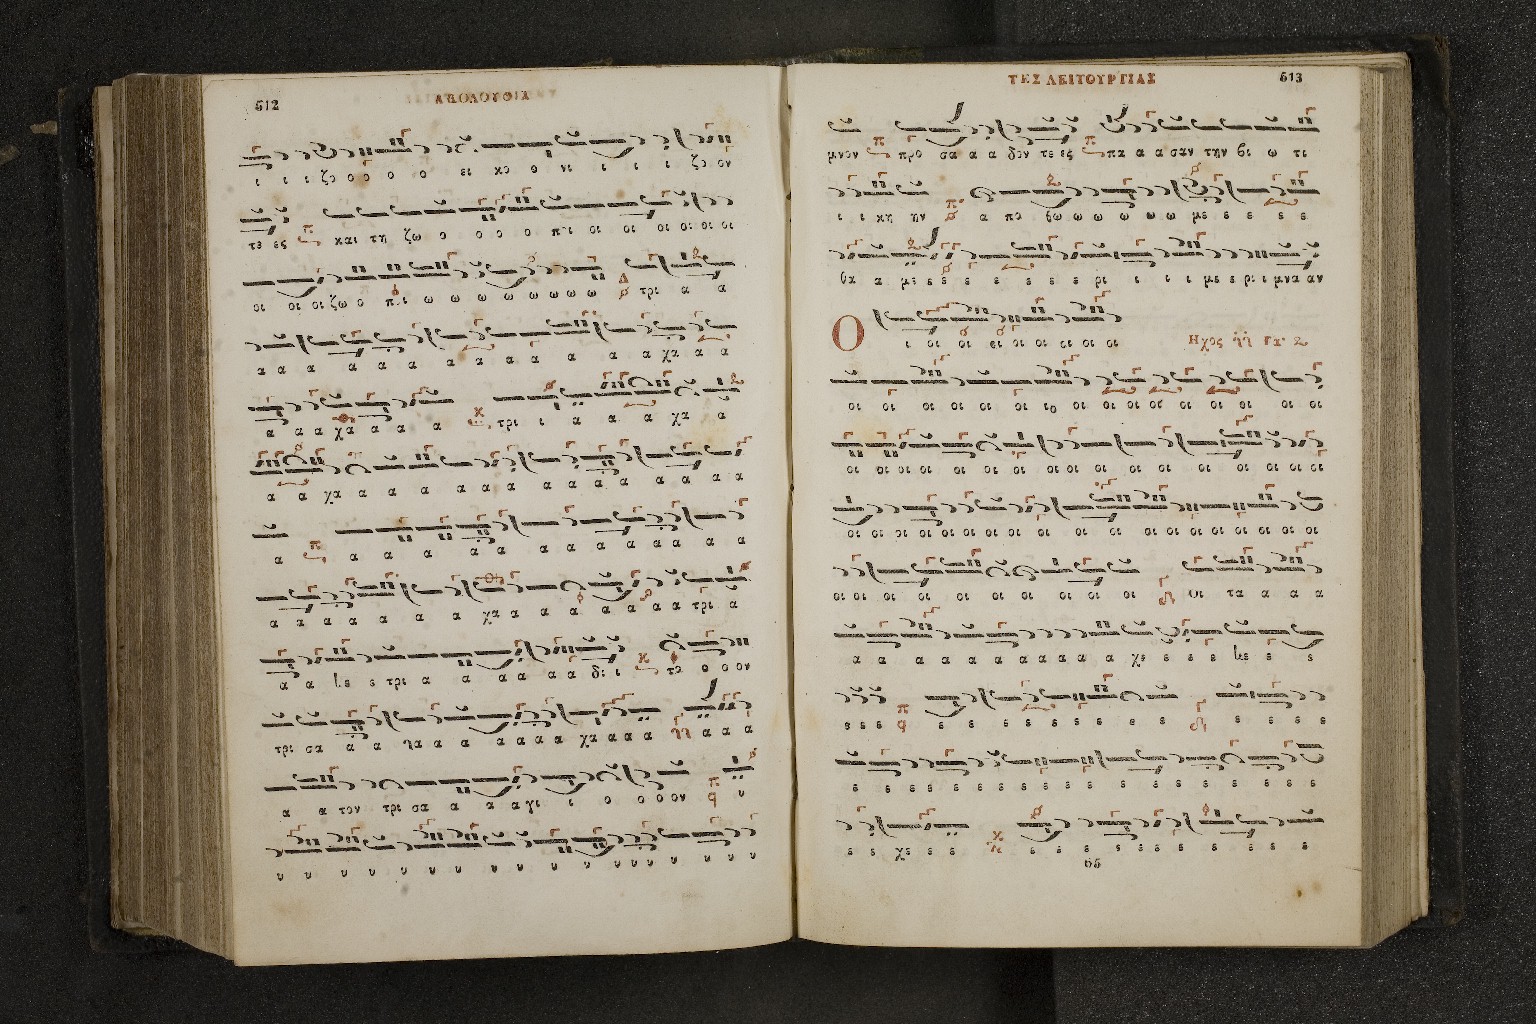 512
ΑΚΟΛΟΥΘΙΑ
ι ι ι ζο ο ο ο ο ει κο ο νι ι ι ι ζο ον
τε ες και τη ζω ο ο ο ο π ι οι οι οι οι οι οι
οι οι οι ζω ο π ι ω ω ω ω ω ω ω ω ω τρι α α
α α α α α α α α α α α α χα α α
α α α χα α α α α τρι ι α α α χα α
α α χα α α α α α α α α α α α α α
α α α α α α α α α α α α α
α α α α α α α χα α α α α α α α α τρι α
α α κε ε τρι α α α α α α δι ι το ο ο ον
τρι σα α α γα α α α α α α χα α α α α α α
α α τον τρι σα α α α γι ι ο ο ο ον υ
υ υ υ υ υ υ υ υ υ υ υ υ υ υ υ υ
ΤΗΣ ΛΕΙΤΟΥΡΓΙΑΣ
513
μνον προ σα α α δον τε ες πα α α σαν την βι ω τι
ι ι κη ην α πο θω ω ω ω ω ω με ε ε ε ε
θα α με ε ε ε ε ε ε ε ρι ι ι ι με ε ρι μνα αν
Ο ι οι οι ει οι οι οι οι οι Ηχος Γα
οι οι οι οι οι ιο οι οι οι οι οι οι οι οι
οι οι οι οι οι οι οι οι οι οι οι οι οι οι οι οι οι
οι οι οι οι οι οι οι οι οι οι οι οι οι οι οι οι οι οι
οι οι οι οι οι οι οι οι οι οι οι τα α α α
α α α α α α α α α α χε ε ε ε κε ε ε
ε ε ε ε ε ε ε ε ε ε ε ε ε ε ε ε
ε ε ε ε ε ε ε ε ε ε ε ε ε ε ε ε
ε ε χε ε ε ε ε ε ε ε ε ε ε ε ε ε
65